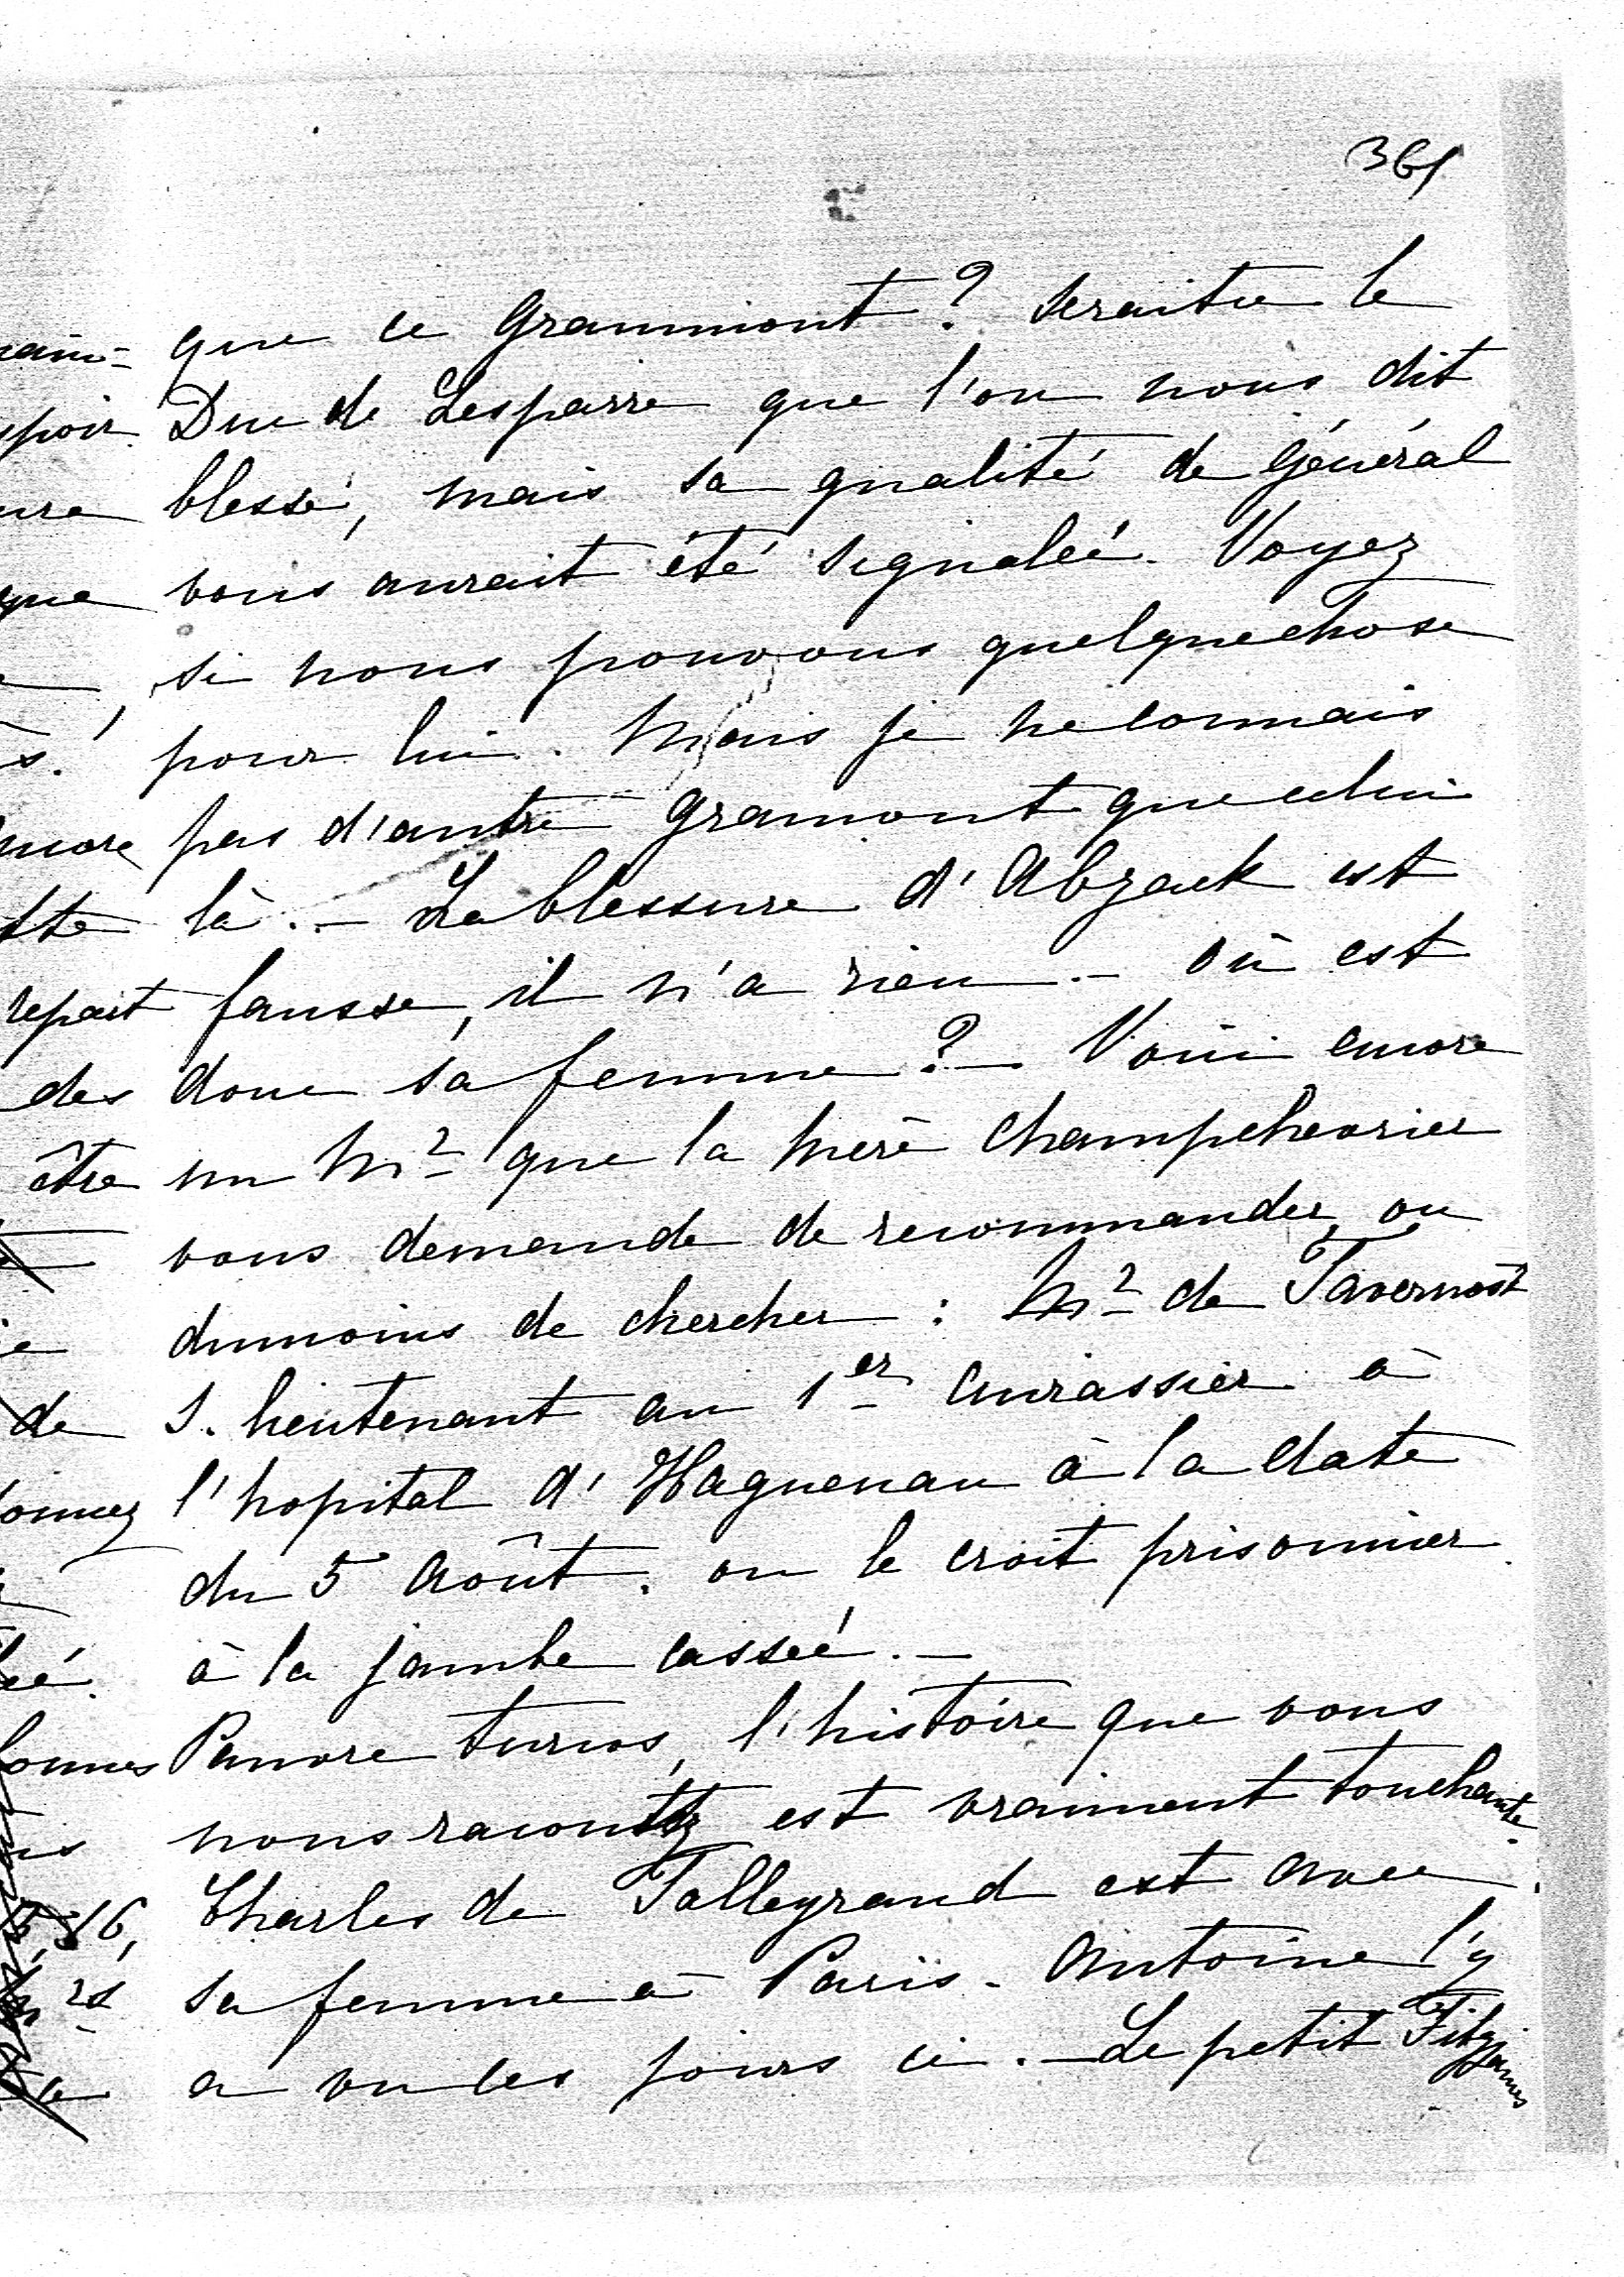 361
que ce Grammont ? Seraitce le
Duc de Lesparre que l'on nous dit
blessé, mais sa qualité de Général
vous aurait été signalée. Voyez
si nous pouvons quelquechose
pour lui. Mais je ne connais
pas d'autre Gramont que celui
là. - La blessure d'Abzack est
fausse, il n'a rien - où est
donc sa femme ? - Voici encore
un Mr que la mère Champchevrier
vous demande de recommander, ou
dumoins de chercher : Mr de Tavernost
S. lieutenant au 1er Cuirassier à
l'hopital d'Haguenau à la date
du 5 Août. on le croit prisonnier
à la jambe cassée. -
Pauvre turcos, l'histoire que vous
nous racontez est vraiment touchante.
Charles de Talleyrand est avec
sa femme à Paris. Antoine l'y
a vu ces jours ci. - Le petit Fitzjames